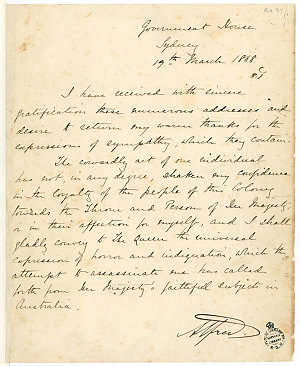 Government House
Sydney
19th March 1868
I have received with sincere
gratification these numerous addresses and
desire to return my warm thanks for the
expressions of sympathy, which they contain.
The cowardly act of one individual
has not, in any degree, shaken my confidence
in the loyalty of the people of this Colony
towards the Throne and Person of Her Majesty,
or in their affection for myself, and I shall
gladly convey to The Queen the universal
expression of horror and indignation, which the
attempt to assassinate me has called
forth from Her Majesty's faithful subjects in
Australia.
Alfred